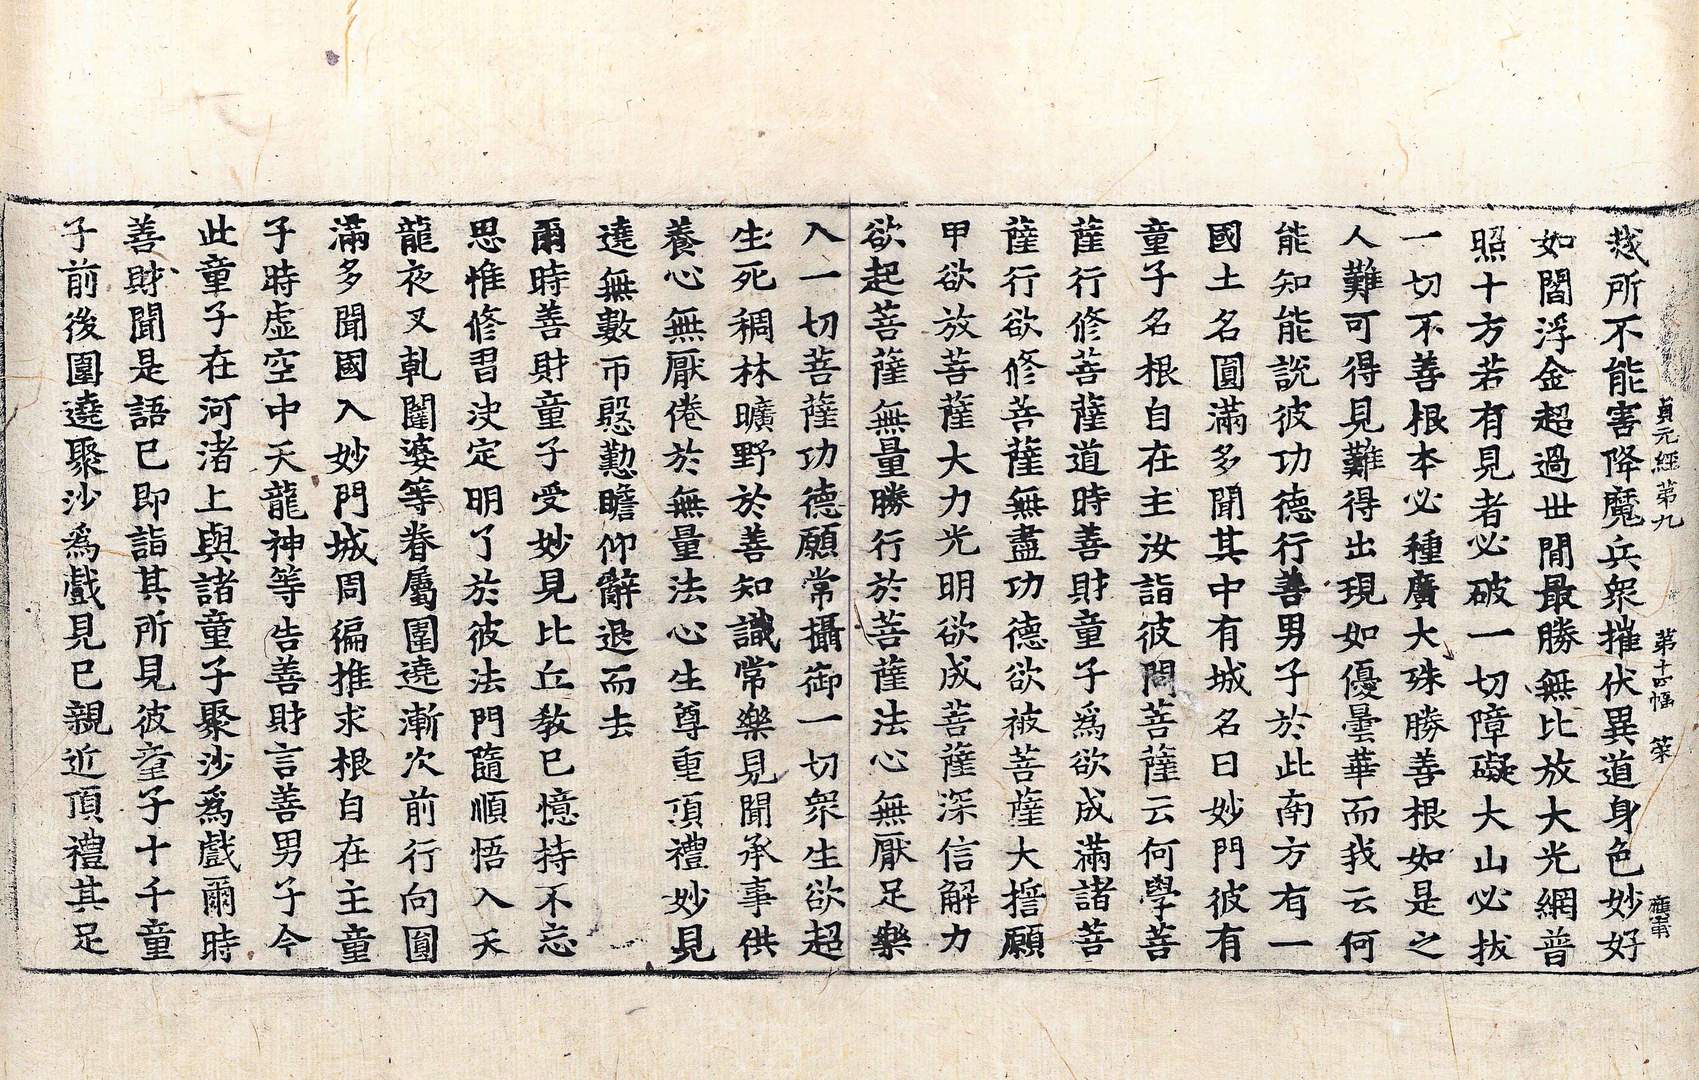 貞元經第九　第十四幅　策
惑所不能害降魔兵衆摧伏異道身色妙好
如閻浮金超過世閒最勝無比放大光網普
照十方若有見者必破一切障礙大山必拔
一切不善根本必種廣大殊勝善根如是之
人難可得見難得出現如優曇華而我云何
能知能說彼功德行善男子於此南方有一
國土名圓滿多聞其中有城名曰妙門彼有
童子名根自在主汝詣彼問菩薩云何學菩
薩行修菩薩道時善財童子爲欲成滿諸菩
薩行欲修菩薩無盡功德欲被菩薩大擔願
甲欲放菩薩大力光明欲成菩薩深信解力
欲起菩薩無量勝行於菩薩法心無厭足樂
入一切菩薩功德願常攝御一切衆生欲超
生死稠林曠野於善知識常樂見聞承事供
養心無厭倦於無量法心生尊重頂禮妙見
遶無數帀慇懃瞻仰辭退而去
爾時善財童子受妙見比丘教已憶持不忘
思惟修習決定明了於彼法門隨順悟入天
龍夜叉乹闥婆等眷屬圍遶漸次前行向圓
滿多聞國入妙門城周徧推求根自在主童
子時虛空中天龍神等告善財言善男子今
此童子在河渚上與諸童子聚沙爲戲爾時
善財聞是語已即詣其所見彼童子十千童
子前後圍遶聚沙爲戲見已親近頂禮其足